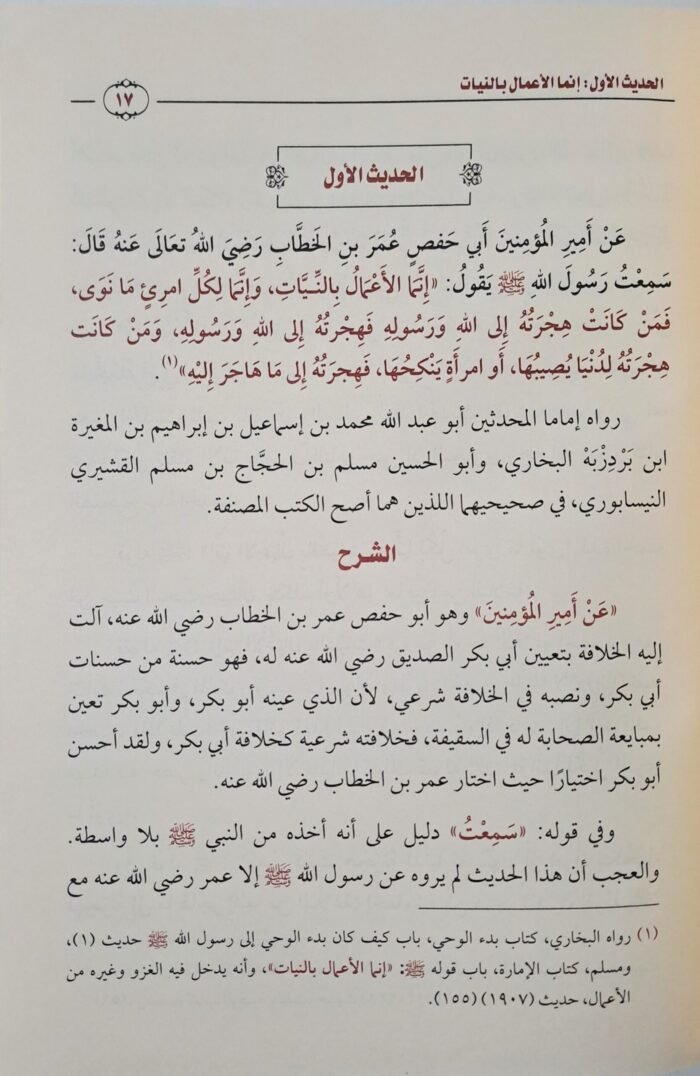 الحديث الأول: إنما الأعمال بالنيات
١٧
الحديث الأول
عَنْ أَمِيرِ المُؤمِنينَ أَبي حَفصٍ عُمَرَ بنِ الخَطَّابِ رَضِيَ اللهُ تعَالَى عَنهُ قَالَ:
سَمِعْتُ رَسُولَ اللهِ ﷺ يَقُولُ: «إِنَّمَا الأَعْمَالُ بِالنِّيَّاتِ، وَإِنَّمَا لِكُلِّ امرِئٍ مَا نَوَى،
فَمَنْ كَانَتْ هِجْرَتُهُ إِلى اللهِ وَرَسُولِهِ فَهِجْرتُهُ إِلى اللهِ وَرَسُولِهِ، وَمَنْ كَانَت
هِجْرَتُهُ لِدُنْيَا يُصِيبُهَا، أَو امرأَةٍ يَنْكِحُهَا، فَهِجرَتُهُ إِلى مَا هَاجَرَ إِلَيْهِ»(١).
رواه إماما المحدثين أبو عبد الله محمد بن إسماعيل بن إبراهيم بن المغيرة
ابن بَرْدِزْبَهْ البخاري، وأبو الحسين مسلم بن الحجَّاج بن مسلم القشيري
النيسابوري، في صحيحيهما اللذين هما أصح الكتب المصنفة.
الشرح
«عَنْ أَمِيرِ المُؤمِنينَ» وهو أبو حفص عمر بن الخطاب رضي الله عنه، آلت
إليه الخلافة بتعيين أبي بكر الصديق رضي الله عنه له، فهو حسنة من حسنات
أبي بكر، ونصبه في الخلافة شرعي، لأن الذي عينه أبو بكر، وأبو بكر تعين
بمبايعة الصحابة له في السقيفة، فخلافته شرعية كخلافة أبي بكر، ولقد أحسن
أبو بكر اختيارًا حيث اختار عمر بن الخطاب رضي الله عنه.
وفي قوله: «سَمِعْتُ» دليل على أنه أخذه من النبي ﷺ بلا واسطة.
والعجب أن هذا الحديث لم يروه عن رسول الله ﷺ إلا عمر رضي الله عنه مع
(١) رواه البخاري، كتاب بدء الوحي، باب كيف كان بدء الوحي إلى رسول الله ﷺ حديث (١)،
ومسلم، كتاب الإمارة، باب قوله ﷺ: «إنما الأعمال بالنيات»، وأنه يدخل فيه الغزو وغيره من
الأعمال، حديث (١٩٠٧) (١٥٥).